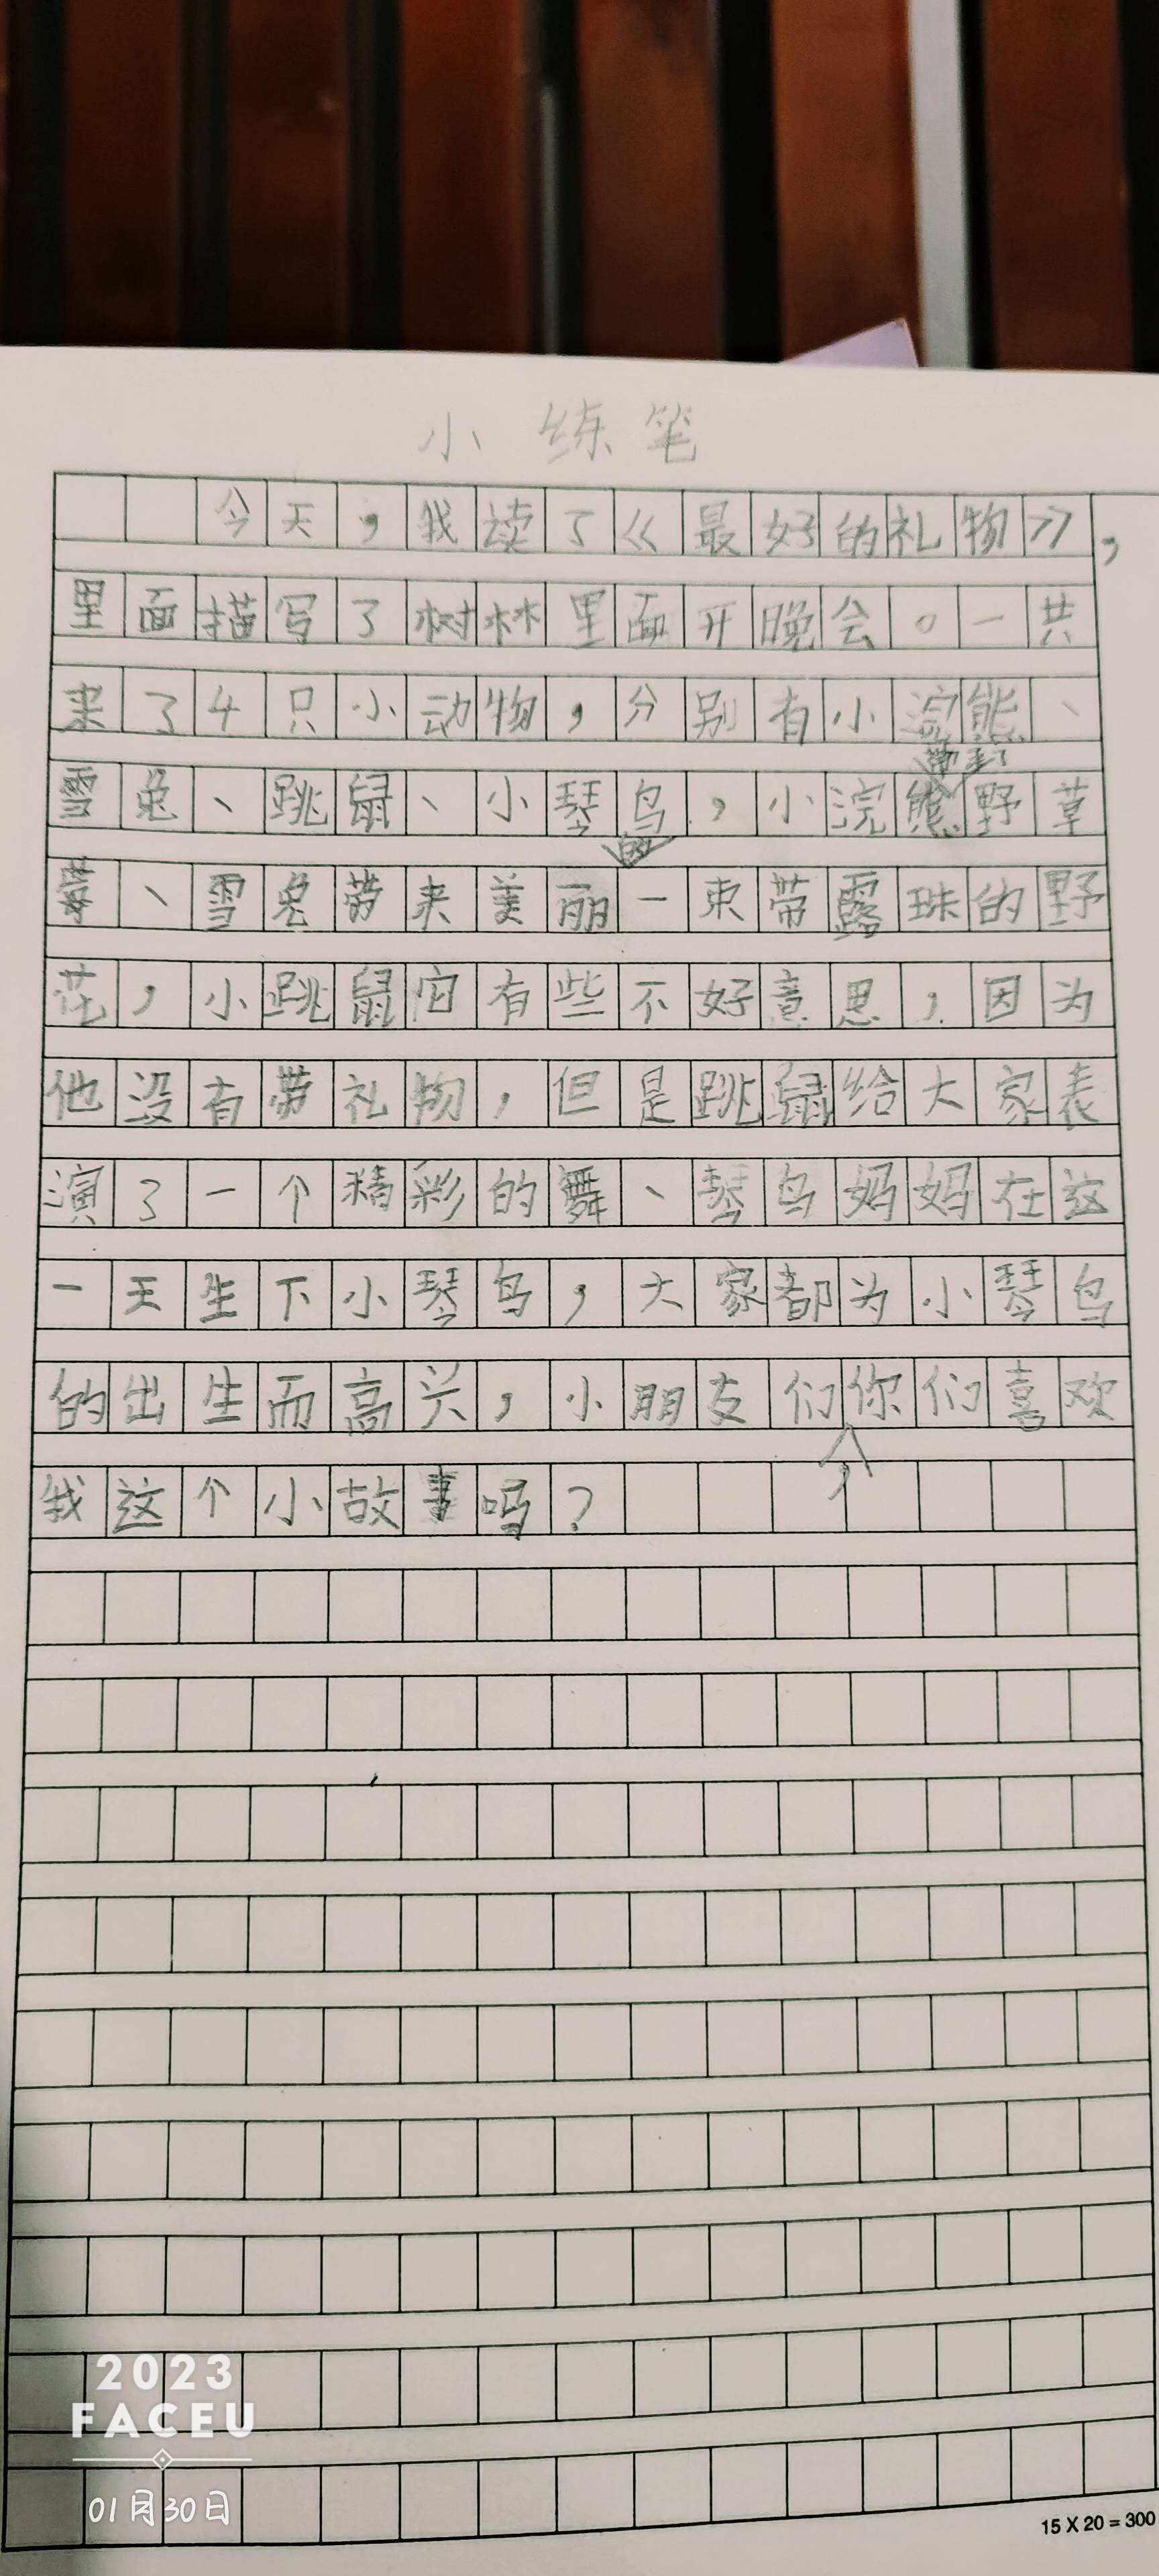 小练笔
今天，我读了《最好的礼物》，
里面描写了树林里面开晚会。一共
来了4只小动物，分别有小浣熊、
带到了
雪兔、跳鼠、小琴鸟，小浣熊野草
的
莓、雪兔带来美丽一束带露珠的野
花，小跳鼠它有些不好意思，因为
他没有带礼物，但是跳鼠给大家表
演了一个精彩的舞、琴鸟妈妈在这
一天生下小琴鸟，大家都为小琴鸟
的出生而高兴，小朋友们你们喜欢
，
我这个小故事吗？
2023
FACEU
01月30日
15 X 20 = 300